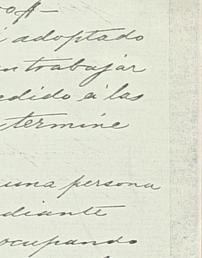 i adoptado
en trabajar
edido á las
etermine
una persona
diante
ocupando